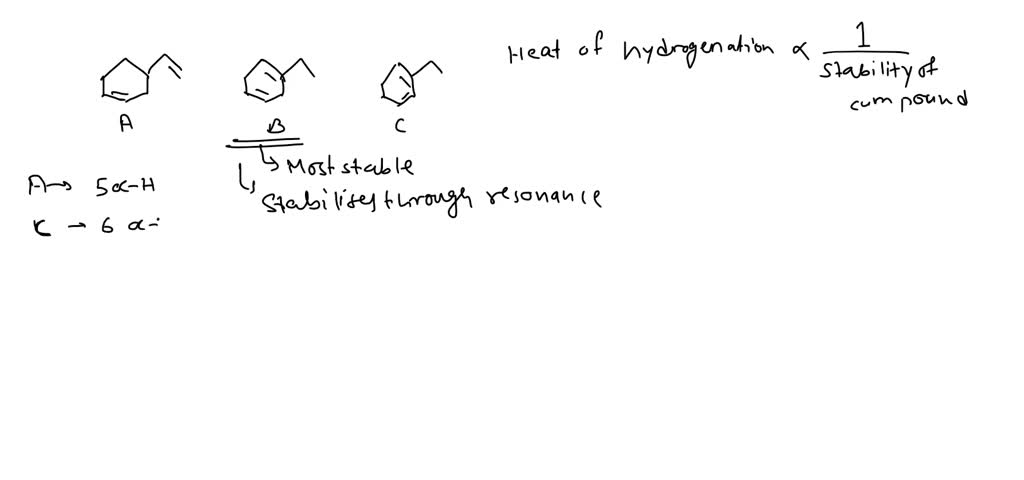 Heat of hydrogenation ∝ 1 / stability of compound
A
B
C
→ Most stable
Stabilises through resonance
A → 5α-H
C → 6 α-